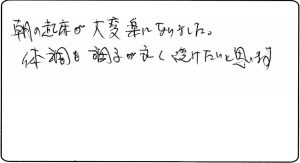 朝の起床が大変楽になりました。
体調も調子が良く続けたいと思います